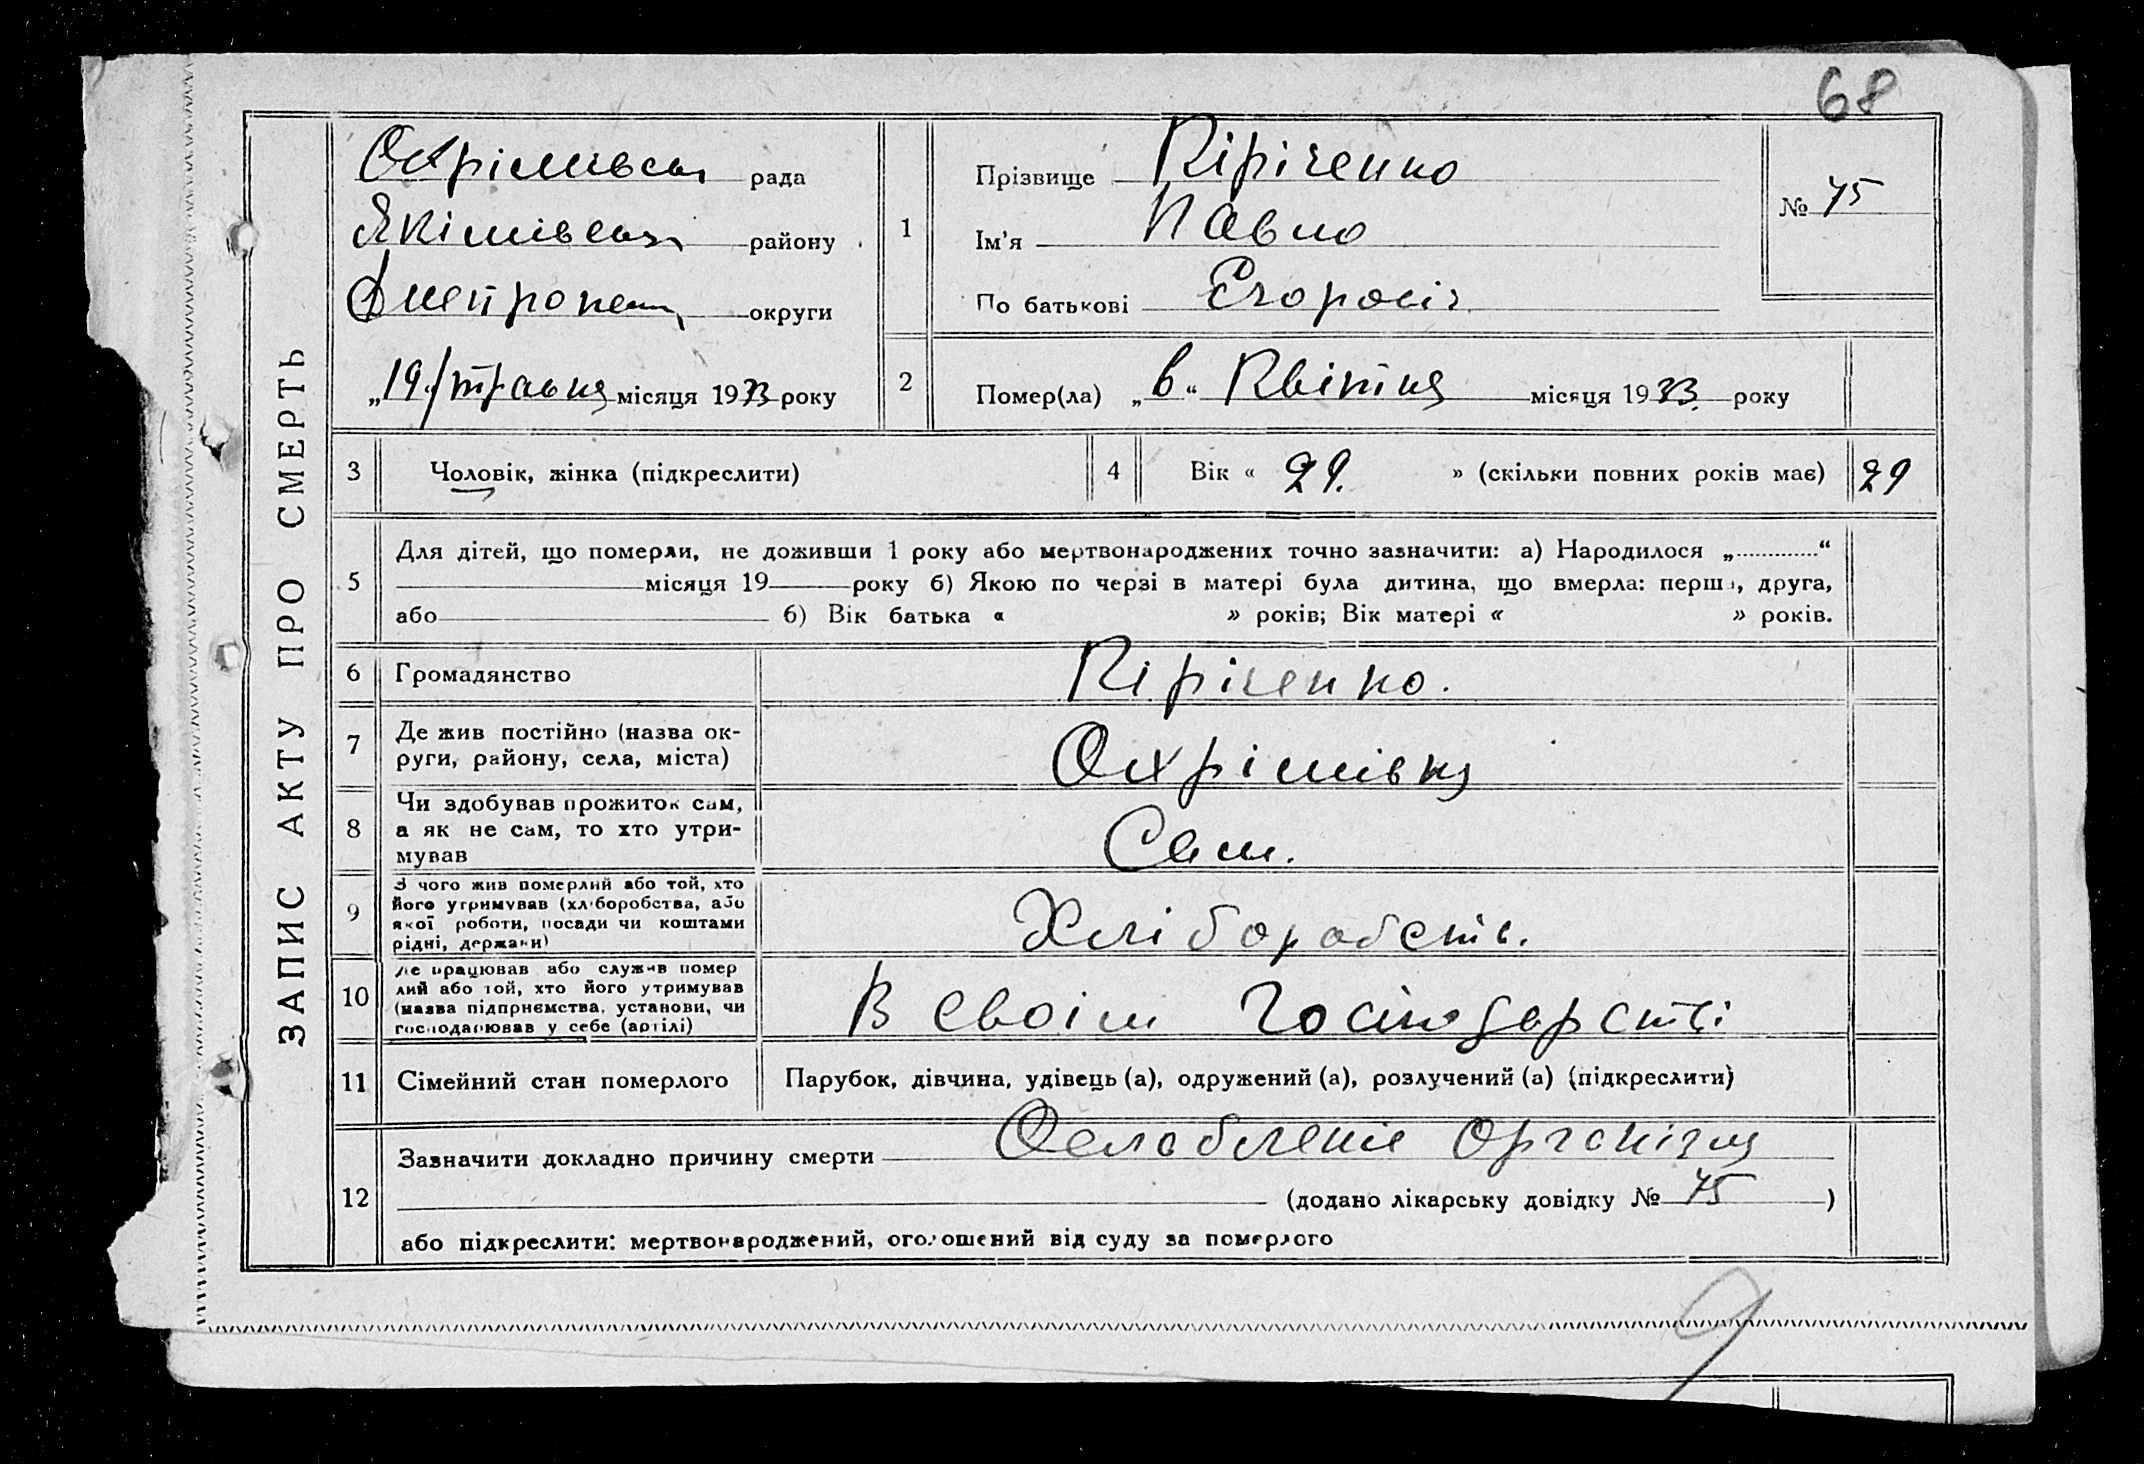 68
ЗАПИС АКТУ ПРО СМЕРТЬ
Охрімівська рада
Якімівська району
округи
„19/травня місяця 1933 року
1
Прізвище Кіріченко
Ім'я Павло
По батькові Єгоровіч
№ 75
2
Помер(ла) „6“ Квітня місяця 1933. року
3 Чоловік, жінка (підкреслити)
4 Вік « 29. » (скільки повних років має) 29
5
Для дітей, що померли, не доживши 1 року або мертвонароджених точно зазначити: а) Народилося „ “
місяця 19 року б) Якою по черзі в матері була дитина, що вмерла: перша, друга,
або б) Вік батька « » років; Вік матері « » років.
6 Громадянство Кіріченко.
7 Де жив постійно (назва ок-
руги, району, села, міста) Охрімівка
8 Чи здобував прожиток сам,
а як не сам, то хто утри-
мував Сам.
9 З чого жив померлий або той, хто
його утримував (хліборобства, або
якої роботи, посади чи коштами
рідні, держави) Хліборобств.
10 Де працював або служив помер
лий або той, хто його утримував
(назва підприємства, установи, чи
господарював у себе (артілі) В своім господарстві
11 Сімейний стан померлого Парубок, дівчина, удівець (а), одружений (а), розлучений (а) (підкреслити)
12
Зазначити докладно причину смерти Ослабленіе организма
(додано лікарську довідку № 75 )
або підкреслити: мертвонароджений, оголошений від суду за померлого